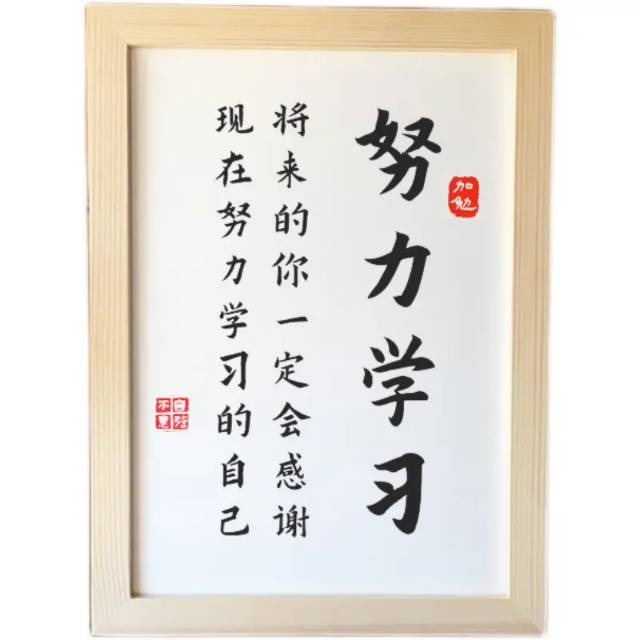 努力学习
加勉
将来的你一定会感谢
现在努力学习的自己
自强不息